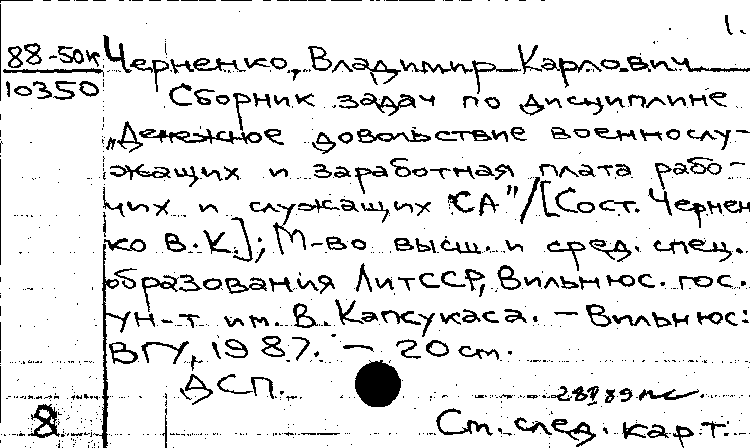 1.
88-50к Черненко, Владимир Карлович
10350 Сборник задач по дисциплине
„Денежное довольствие военнослу-
жащих и заработная плата рабо-
чих и служащих СА"/[Сост. Чернен
ко В.К.]; М-во высш. и сред. спец.
образования ЛитССР, Вильнюс. гос.
ун-т им. В. Капсукаса. – Вильнюс:
ВГУ, 1987. – 20 см.
ДСП.
8 Ст. след. карт.